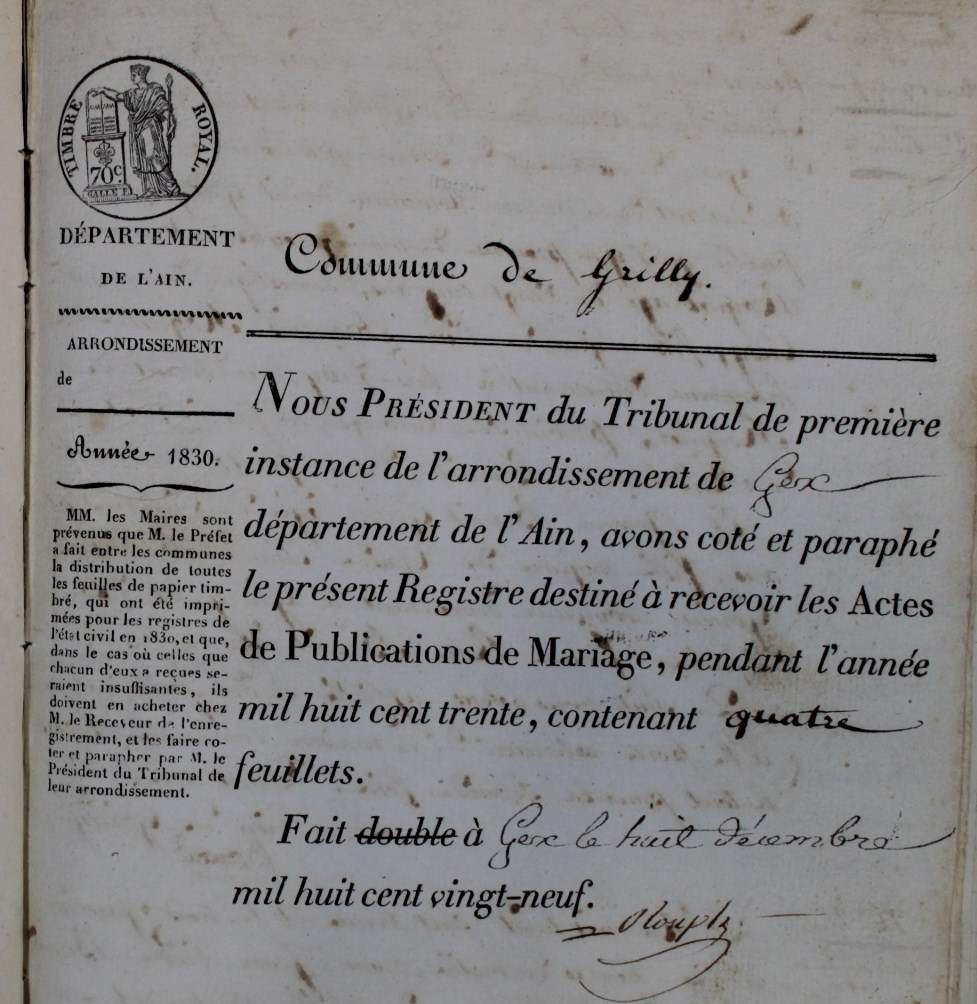 TIMBRE ROYAL.
70c.
DÉPARTEMENT
DE L'AIN.
ARRONDISSEMENT
de
Année 1830.
MM. les Maires sont
prévenus que M. le Préfet
a fait entre les communes
la distribution de toutes
les feuilles de papier tim-
bré, qui ont été impri-
mées pour les registres de
l'état civil en 1830, et que,
dans le cas où celles que
chacun d'eux a reçues se-
raient insuffisantes, ils
doivent en acheter chez
M. le Receveur de l'enre-
gistrement, et les faire co-
ter et parapher par M. le
Président du Tribunal de
leur arrondissement.
Commune de Grilly.
NOUS PRÉSIDENT du Tribunal de première
instance de l'arrondissement de Gex
département de l'Ain, avons coté et paraphé
le présent Registre destiné à recevoir les Actes
de Publications de Mariage, pendant l'année
mil huit cent trente, contenant quatre
feuillets.
Fait double à Gex le huit décembre
mil huit cent vingt-neuf.